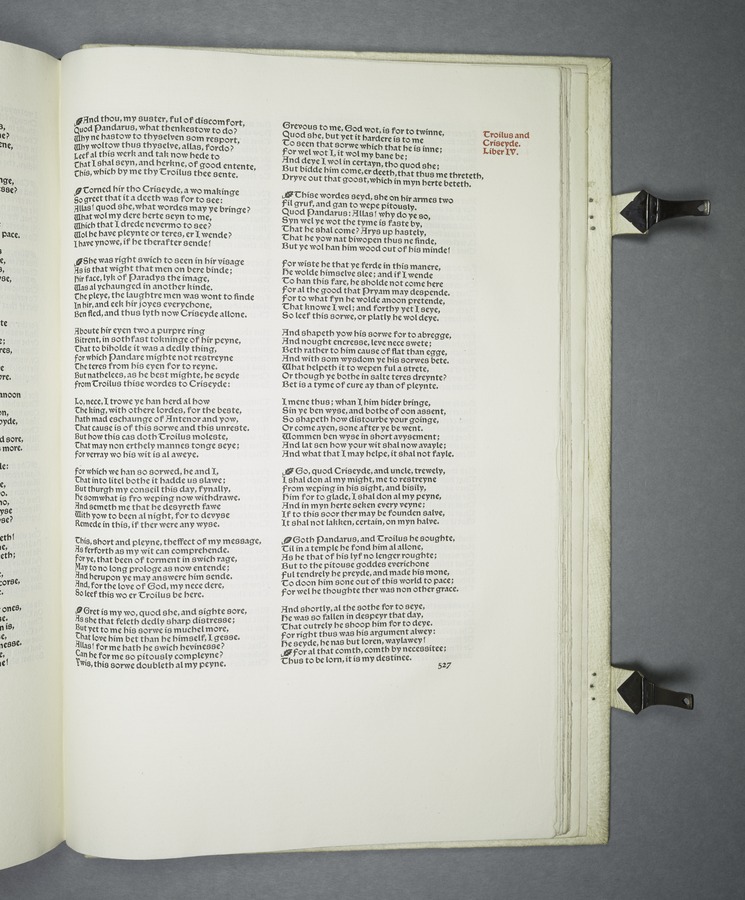 And thou, my suster, ful of discomfort,
Quod Pandarus, what thenkestow to do?
Why ne hastow to thyselven som resport,
Why woltow thus thyselve, allas, fordo?
Leef al this werk and tak now hede to
That I shal seyn, and herkne, of good entente,
This, which by me thy Troilus thee sente.
Torned hir tho Criseyde, a wo makinge
So greet that it a deeth was for to see:
Allas! quod she, what wordes may ye bringe?
What wol my dere herte seyn to me,
Which that I drede nevermo to see?
Wol he have pleynte or teres, er I wende?
I have ynowe, if he therafter sende!
She was right swich to seen in hir visage
As is that wight that men on bere binde;
Hir face, lyk of Paradys the image,
Was al ychaunged in another kinde.
The pleye, the laughtre men was wont to finde
In hir, and eek hir joyes everychone,
Ben fled, and thus lyth now Criseyde allone.
Aboute hir eyen two a purpre ring
Bitrent, in sothfast tokninge of hir peyne,
That to biholde it was a dedly thing,
For which Pandare mighte not restreyne
The teres from his eyen for to reyne.
But nathelees, as he best mighte, he seyde
From Troilus thise wordes to Criseyde:
Lo, nece, I trowe ye han herd al how
The king, with othere lordes, for the beste,
Hath mad eschaunge of Antenor and yow,
That cause is of this sorwe and this unreste.
But how this cas doth Troilus moleste,
That may non erthely mannes tonge seye;
For verray wo his wit is al aweye.
For which we han so sorwed, he and I,
That into litel bothe it hadde us slawe;
But thurgh my conseil this day, fynally,
He somwhat is fro weping now withdrawe.
And semeth me that he desyreth fawe
With yow to been al night, for to devyse
Remede in this, if ther were any wyse.
This, short and pleyne, theffect of my message,
As ferforth as my wit can comprehende.
For ye, that been of torment in swich rage,
May to no long prologe as now entende;
And herupon ye may answere him sende.
And, for the love of God, my nece dere,
So leef this wo er Troilus be here.
Gret is my wo, quod she, and sighte sore,
As she that feleth dedly sharp distresse;
But yet to me his sorwe is muchel more,
That love him bet than he himself, I gesse.
Allas! for me hath he swich hevinesse?
Can he for me so pitously compleyne?
Ywis, this sorwe doubleth al my peyne.
Grevous to me, God wot, is for to twinne,
Quod she, but yet it hardere is to me
To seen that sorwe which that he is inne;
For wel wot I, it wol my bane be;
And deye I wol in certayn, tho quod she;
But bidde him come, er deeth, that thus me threteth,
Dryve out that goost, which in myn herte beteth.
Thise wordes seyd, she on hir armes two
Fil gruf, and gan to wepe pitously.
Quod Pandarus: Allas! why do ye so,
Syn wel ye wot the tyme is faste by,
That he shal come? Arys up hastely,
That he yow nat biwopen thus ne finde,
But ye wol han him wood out of his minde!
For wiste he that ye ferde in this manere,
He wolde himselve slee; and if I wende
To han this fare, he sholde not come here
For al the good that Pryam may despende.
For to what fyn he wolde anoon pretende,
That knowe I wel; and forthy yet I seye,
So leef this sorwe, or platly he wol deye.
And shapeth yow his sorwe for to abregge,
And nought encresse, leve nece swete;
Beth rather to him cause of flat than egge,
And with som wysdom ye his sorwes bete.
What helpeth it to wepen ful a strete,
Or though ye bothe in salte teres dreynte?
Bet is a tyme of cure ay than of pleynte.
I mene thus; whan I him hider bringe,
Sin ye ben wyse, and bothe of oon assent,
So shapeth how distourbe your goinge,
Or come ayen, sone after ye be went.
Wommen ben wyse in short avysement;
And lat sen how your wit shal now avayle;
And what that I may helpe, it shal not fayle.
Go, quod Criseyde, and uncle, trewely,
I shal don al my might, me to restreyne
From weping in his sight, and bisily,
Him for to glade, I shal don al my peyne,
And in myn herte seken every veyne;
If to this soor ther may be founden salve,
It shal not lakken, certain, on myn halve.
Goth Pandarus, and Troilus he soughte,
Til in a temple he fond him al allone,
As he that of his lyf no lenger roughte;
But to the pitouse goddes everichone
Ful tendrely he preyde, and made his mone,
To doon him sone out of this world to pace;
For wel he thoughte ther was non other grace.
And shortly, al the sothe for to seye,
He was so fallen in despeyr that day,
That outrely he shoop him for to deye.
For right thus was his argument alwey:
He seyde, he nas but loren, waylawey!
For al that comth, comth by necessitee;
Thus to be lorn, it is my destinee.
527
Troilus and
Criseyde.
Liber IV.